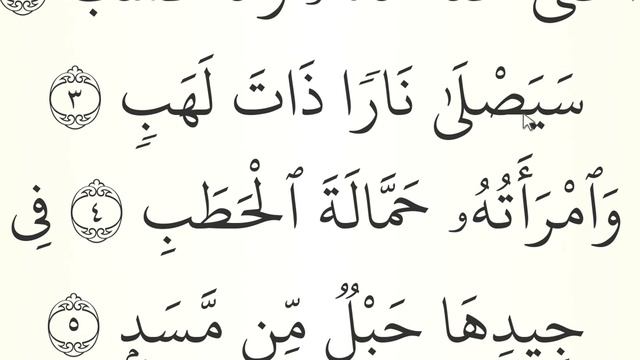 سَيَصْلَىٰ نَارًا ذَاتَ لَهَبٍ ٣
وَٱمْرَأَتُهُۥ حَمَّالَةَ ٱلْحَطَبِ ٤ فِى
جِيدِهَا حَبْلٌ مِّن مَّسَدٍۭ ٥